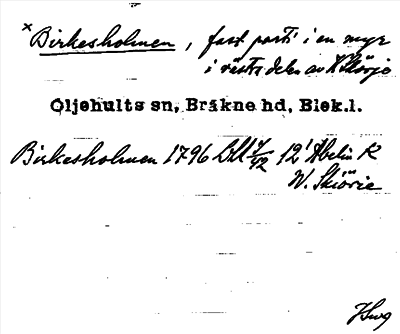 × Birkesholmen, fast parti i en myr
i västra delen av V. Skörje
Oljehults sn, Bräkne hd, Blek.l.
Birkesholmen 1796 LLA 4/42 12' Abelin K
W. Skiörie